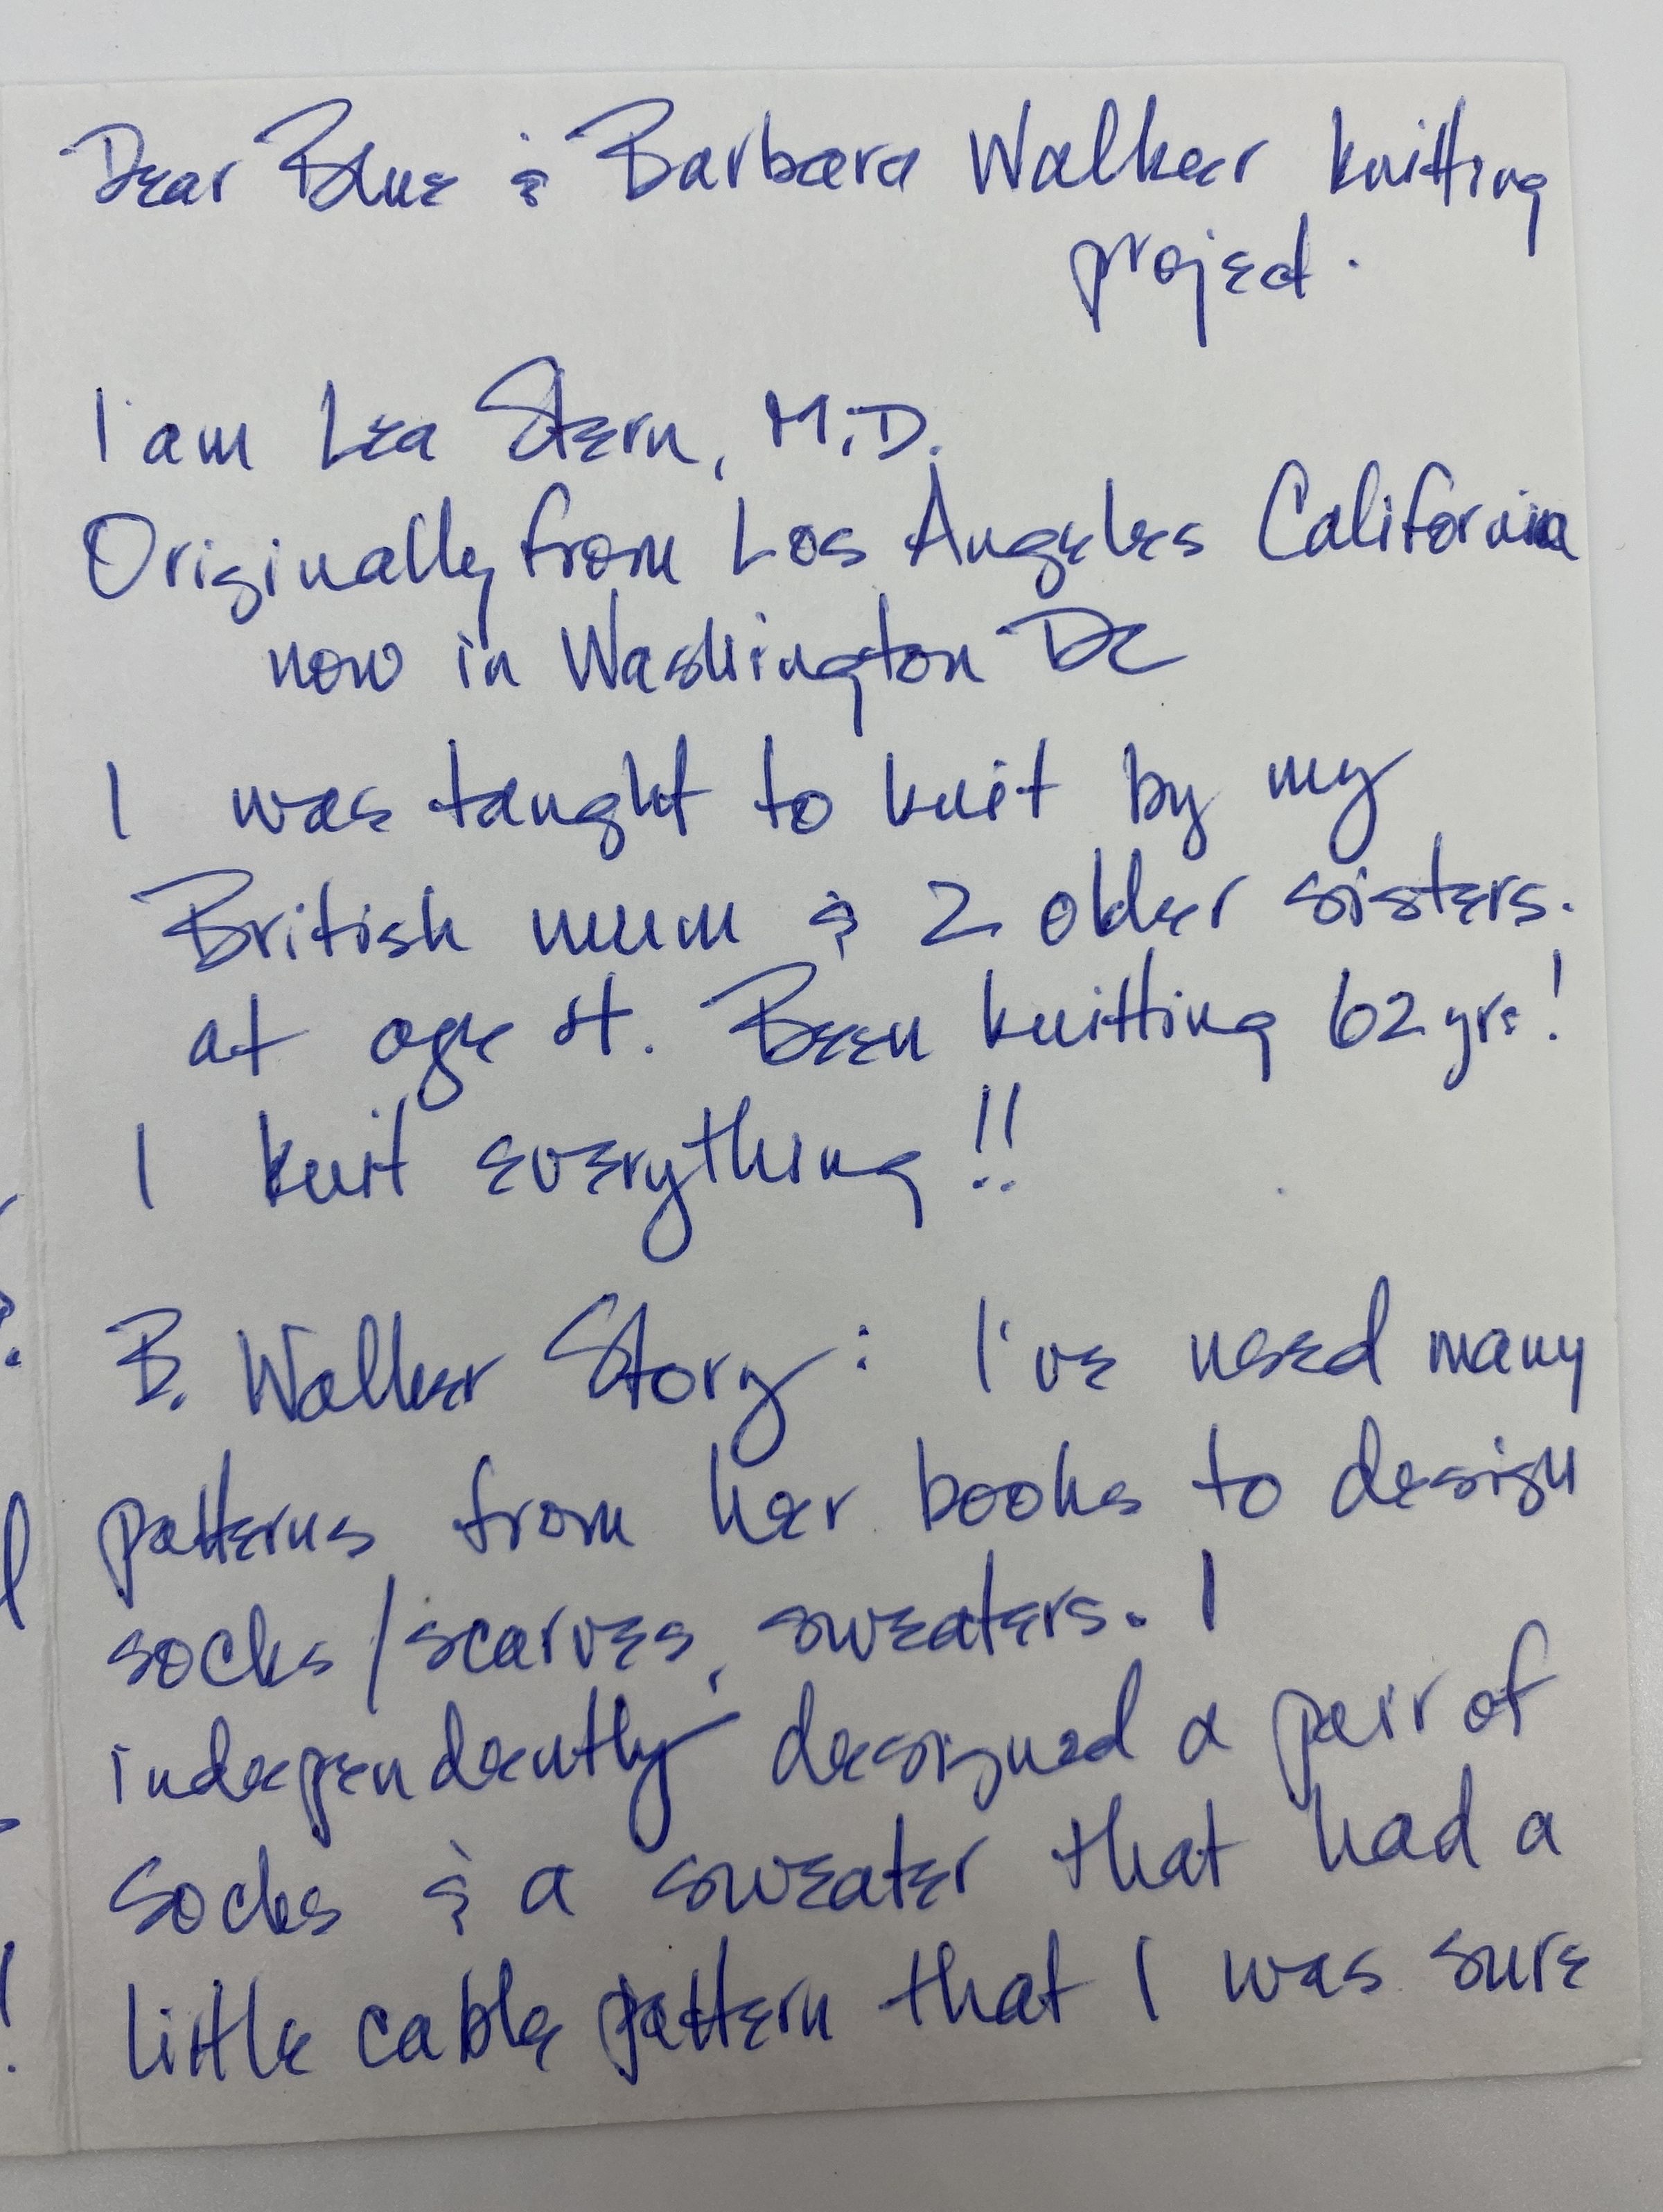 Dear Blue & Barbara Walker knitting
project.
I am Lea Stern, M.D.
Originally from Los Angeles California
now in Washington DC
I was taught to knit by my
British mum & 2 older sisters.
at age 4. Been knitting 62 yrs!
I knit everything!!
B. Walker Story: I've used many
patterns from her books to design
socks/scarves, sweaters. I
independently designed a pair of
socks & a sweater that had a
little cable pattern that I was sure